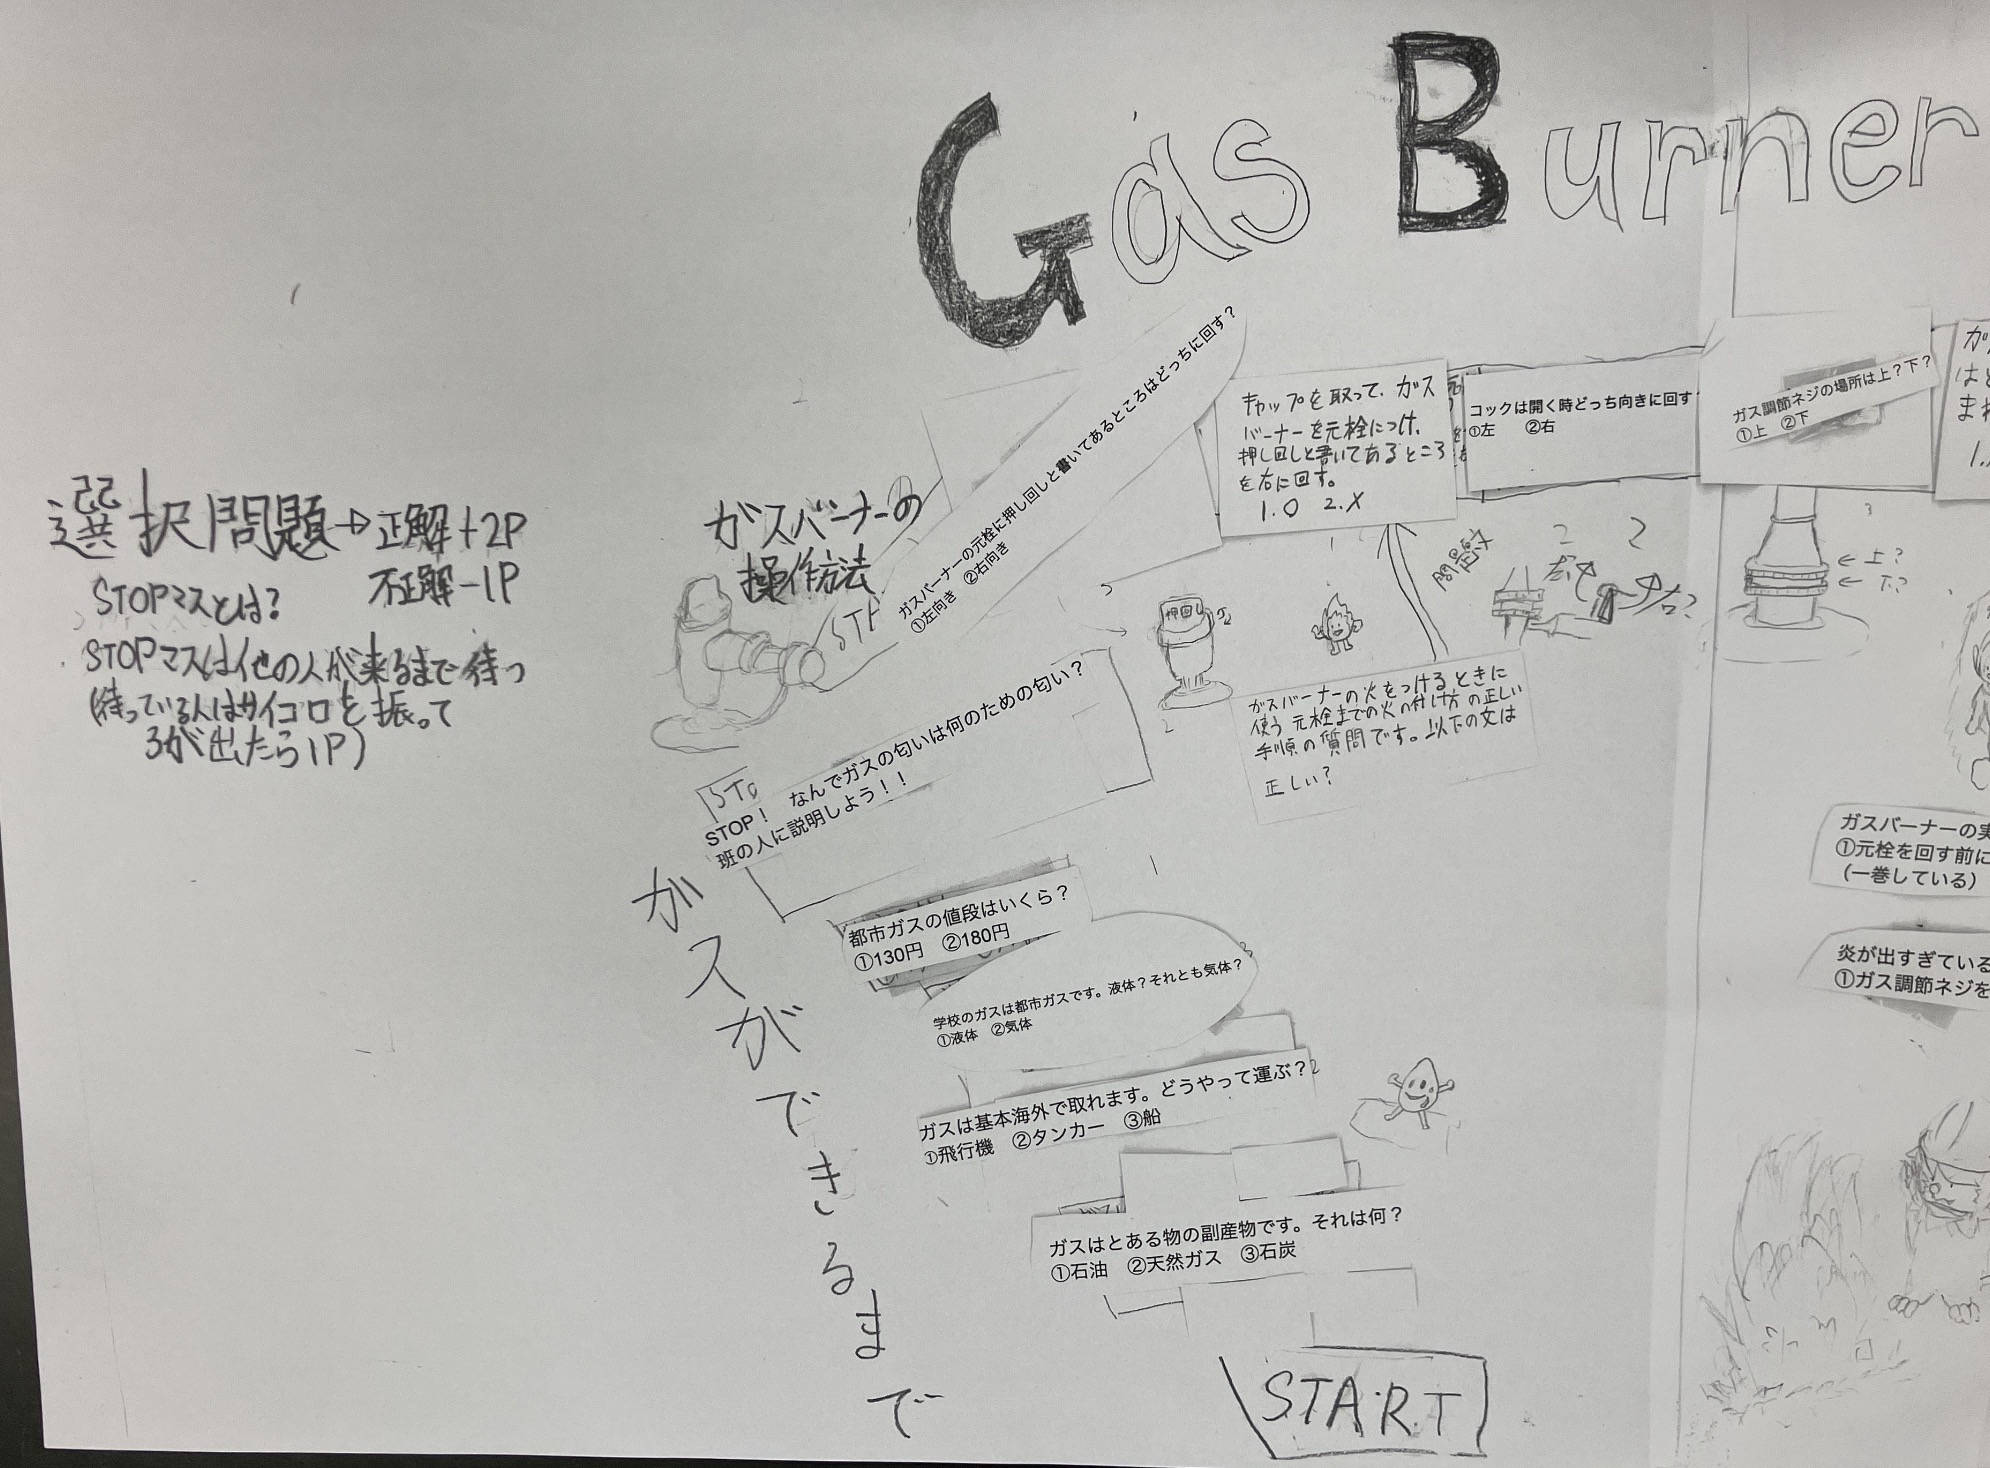 Gas Burner
選択問題→正解+2P
不正解-1P
STOPマスとは?
STOPマスは他の人が来るまで待つ
(待っている人はサイコロを振って
3が出たら1P)
ガスバーナーの
操作方法
ガスバーナーの元栓に押し回しと書いてあるところはどっちに回す?
①左向き ②右向き
キャップを取って、ガス
バーナーを元栓につけ、
押し回しと書いてあるところ
を右に回す。
1.O 2.X
コックは開く時どっち向きに回す
①左 ②右
ガス調節ネジの場所は上?下?
①上 ②下
←上?
←下?
押回し
問題
右?
ガスバーナーの火をつけるときに
使う元栓までの火の付け方の正しい
手順の質問です。以下の文は
正しい?
STOP! なんでガスの匂いは何のための匂い?
班の人に説明しよう!!
都市ガスの値段はいくら?
①130円 ②180円
学校のガスは都市ガスです。液体?それとも気体?
①液体 ②気体
ガスは基本海外で取れます。どうやって運ぶ?
①飛行機 ②タンカー ③船
ガスはとある物の副産物です。それは何?
①石油 ②天然ガス ③石炭
START
ガスができるまで
ガスバーナーの実
①元栓を回す前に
(一巻している)
炎が出すぎている
①ガス調節ネジを